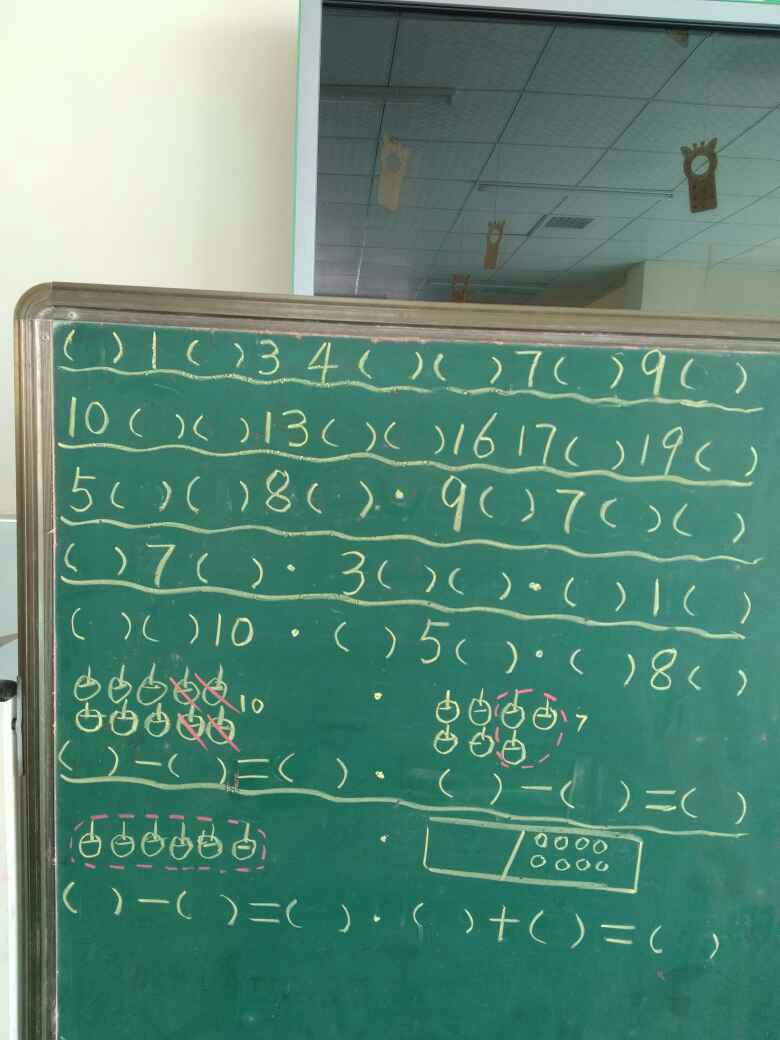 ( ) 1 ( ) 3 4 ( ) ( ) 7 ( ) 9 ( )
10 ( ) ( ) 13 ( ) ( ) 16 17 ( ) 19 ( )
5 ( ) ( ) 8 ( ) · 9 ( ) 7 ( ) ( )
( ) 7 ( ) · 3 ( ) ( ) · ( ) 1 ( )
( ) ( ) 10 · ( ) 5 ( ) · ( ) 8 ( )
10 · 7
( ) - ( ) = ( ) · ( ) - ( ) = ( )
·
( ) - ( ) = ( ) · ( ) + ( ) = ( )